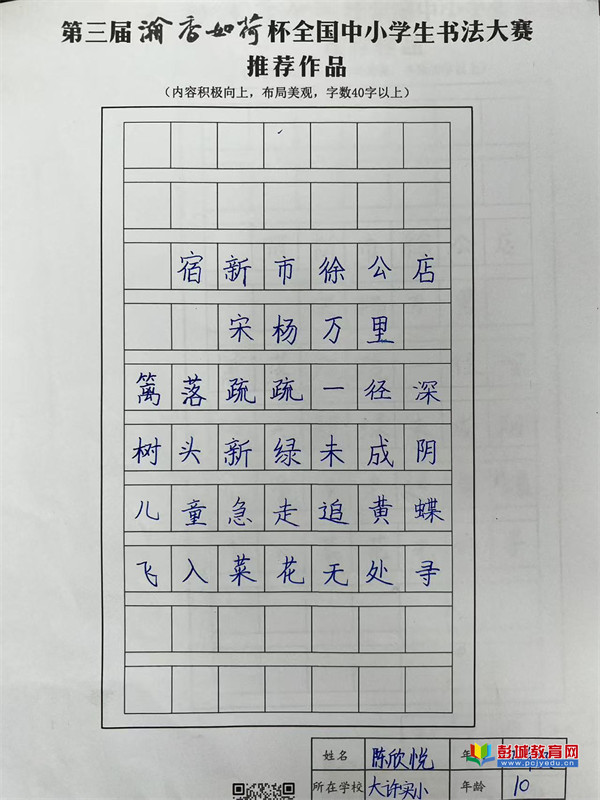 第三届瀚香如荷杯全国中小学生书法大赛
推荐作品
（内容积极向上，布局美观，字数40字以上）
宿新市徐公店
宋杨万里
篱落疏疏一径深
树头新绿未成阴
儿童急走追黄蝶
飞入菜花无处寻
姓名 陈欣悦 年
所在学校 大许实小 年龄 10
彭城教育网
www.pcjyedu.cn